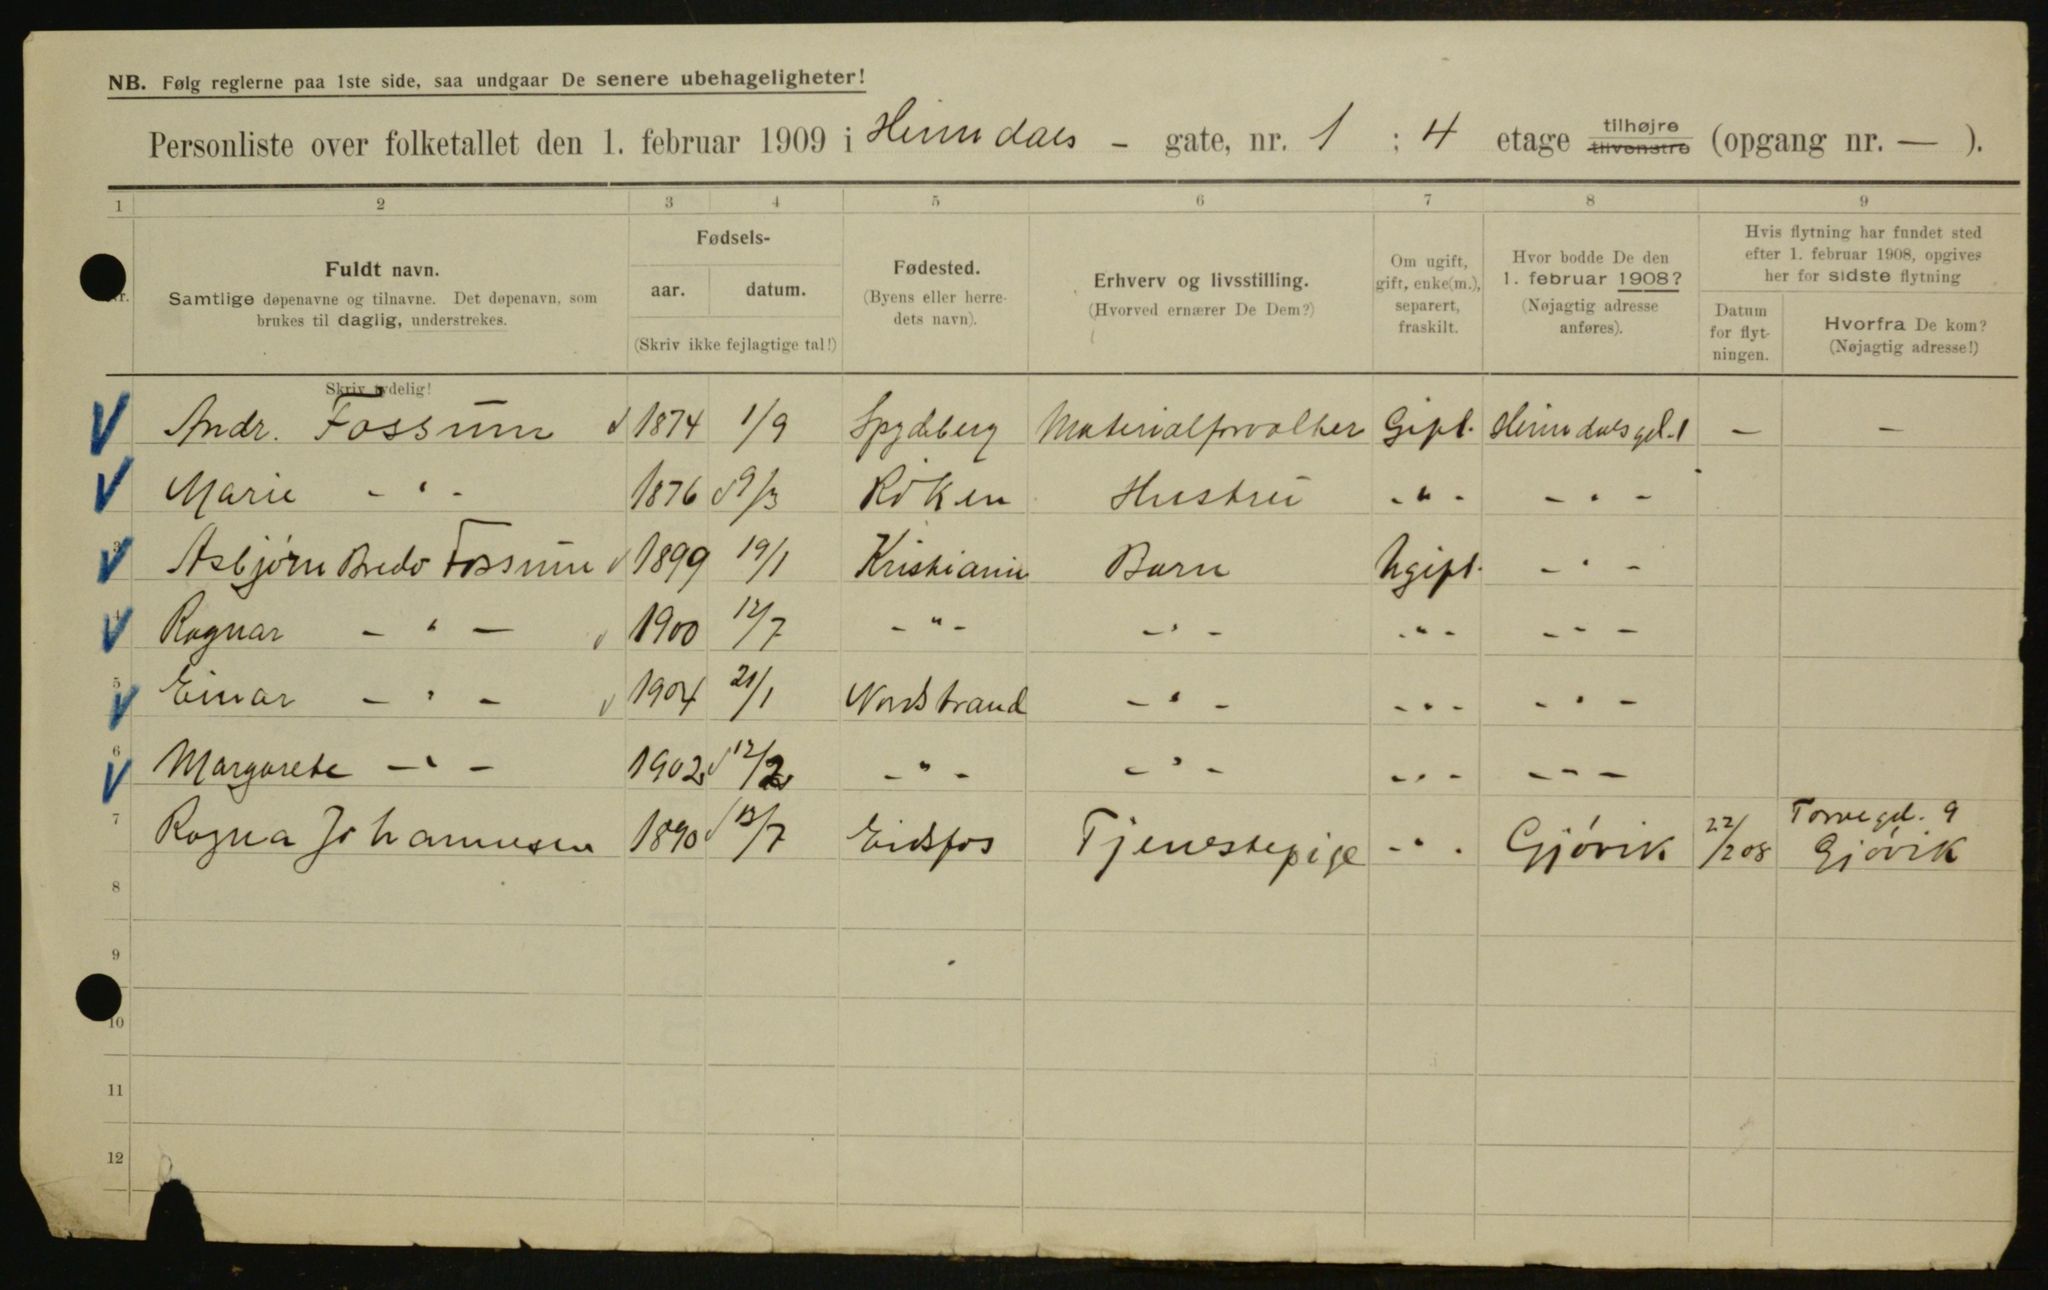 NB. Følg reglerne paa 1ste side, saa undgaar De senere ubehageligheter!
Personliste over folketallet den 1. februar 1909 i Heimdals - gate, nr. 1 : 4 etage tilhøjre tilvenstre (opgang nr. — ).
1 2 3 4 5 6 7 8 9
Nr.
Fuldt navn.
Samtlige døpenavne og tilnavne. Det døpenavn, som
brukes til daglig, understrekes.
Skriv tydelig!
Fødsels-
aar. datum.
(Skriv ikke fejlagtige tal!)
Fødested.
(Byens eller herre-
dets navn).
Erhverv og livsstilling.
(Hvorved ernærer De Dem?)
Om ugift,
gift, enke(m.),
separert,
fraskilt.
Hvor bodde De den
1. februar 1908?
(Nøjagtig adresse
anføres).
Hvis flytning har fundet sted
efter 1. februar 1908, opgives
her for sidste flytning
Datum
for flyt-
ningen.
Hvorfra De kom?
(Nøjagtig adresse!)
Andr. Fossum 1874 1/9 Spydeberg Materialforvalter Gift. Heimdalsgd. 1 — —
Marie - " - 1876 9/3 Röken Hustru - " - - " -
3 Asbjörn Bredo Fossum 1899 19/1 Kristiania Barn Ugift. - " -
4 Ragnar - " - 1900 12/7 - " - - " - - " - - " -
5 Einar - " - 1904 21/1 Nordstrand - " - - " - - " -
6 Margarete - " - 1902 12/2 - " - - " - - " - - " -
7 Ragna Johannesen 1890 13/7 Eidsfos Tjenestepige - " - Gjövik 22/2 08 Torvegd. 9
Gjövik
8
9
10
11
12